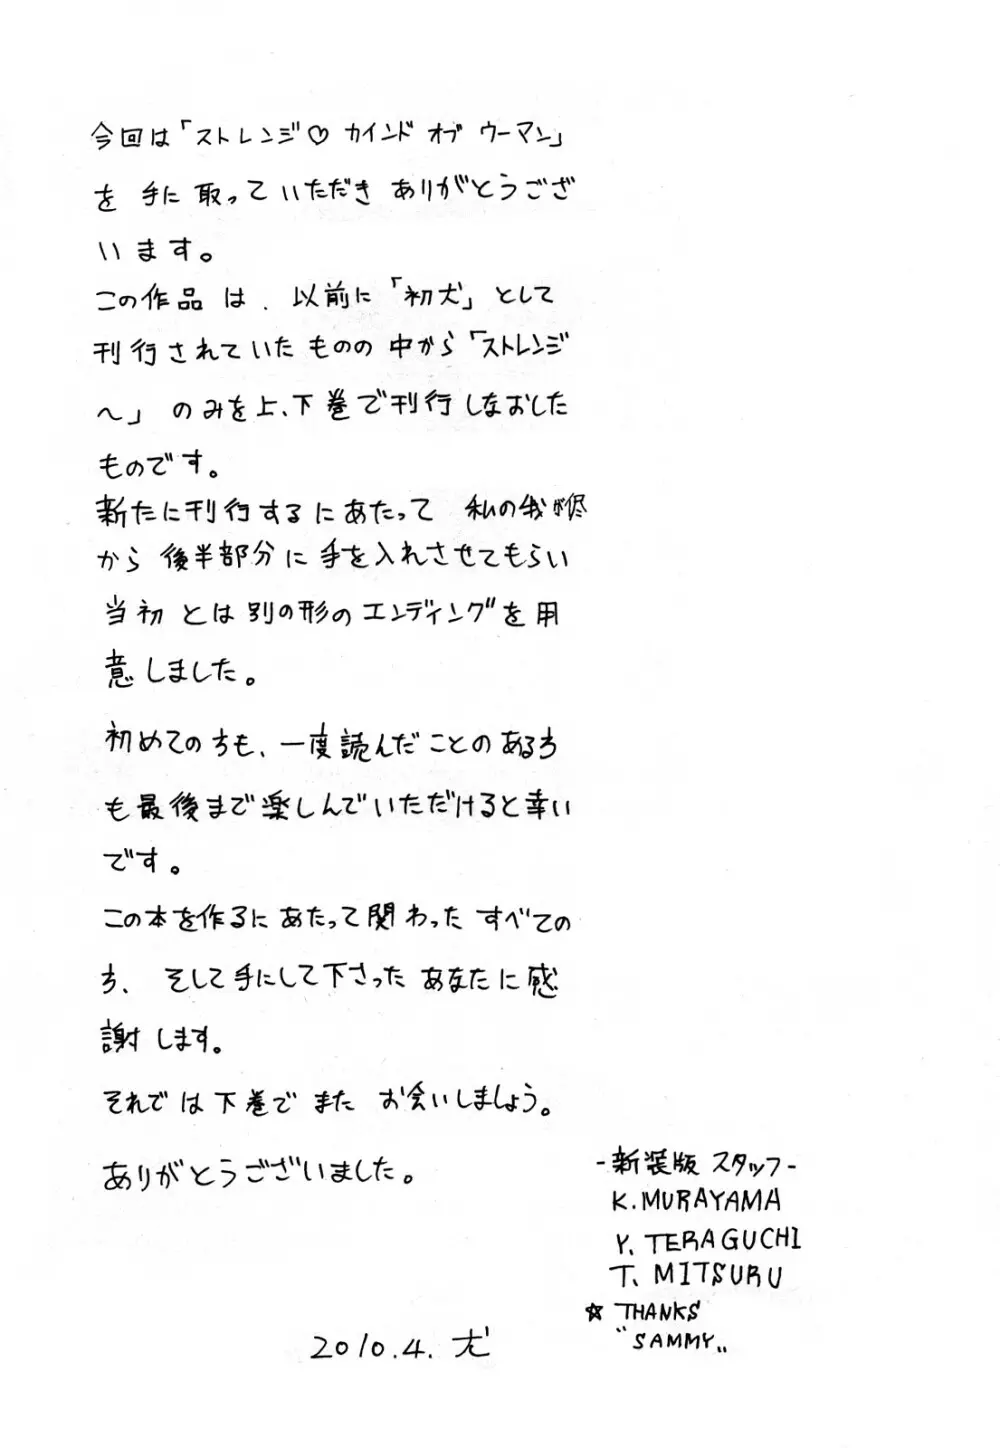 今回は「ストレンジ♡ カインド オブ ウーマン」
を 手に 取っていただき ありがとうござ
います。
この作品 は、以前に「初犬」として
刊行されていた ものの 中から「ストレンジ
〜」 のみを上、下巻で刊行しなおした
ものです。
新たに刊行するにあたって 私の我が侭
から 後半部分に 手を入れさせてもらい
当初 とは 別の形の エンディングを用
意しました。
初めての方も、一度読んだことのある方
も最後まで楽しんでいただけると幸い
です。
この本を作るにあたって関わった すべての
方、 そして手にして下さった あなたに感
謝します。
それでは下巻で また お会いしましょう。
ありがとうございました。
-新装版 スタッフ-
K. MURAYAMA
Y. TERAGUCHI
T. MITSURU
☆ THANKS
"SAMMY"
2010.4.